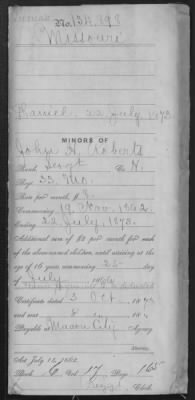 No. 134,898
Missouri
Daniel. 22 July, 1873
MINORS OF
John H. Roberts
Rank Sergt Co. H.
Reg. 33. Mo.
Rate per month, $8
Commencing 19 Nov. 1862
Ending 22 July, 1873.
Additional sum of $2 per month for each
of the above-named children, until arriving at the
age of 16 years, commencing 25 day
of July
Certificate dated 3 Oct
and sent 8
Payable Macon City Agency
Act July 14, 1862.
Book Vol. 17 Page 165
Clerk.